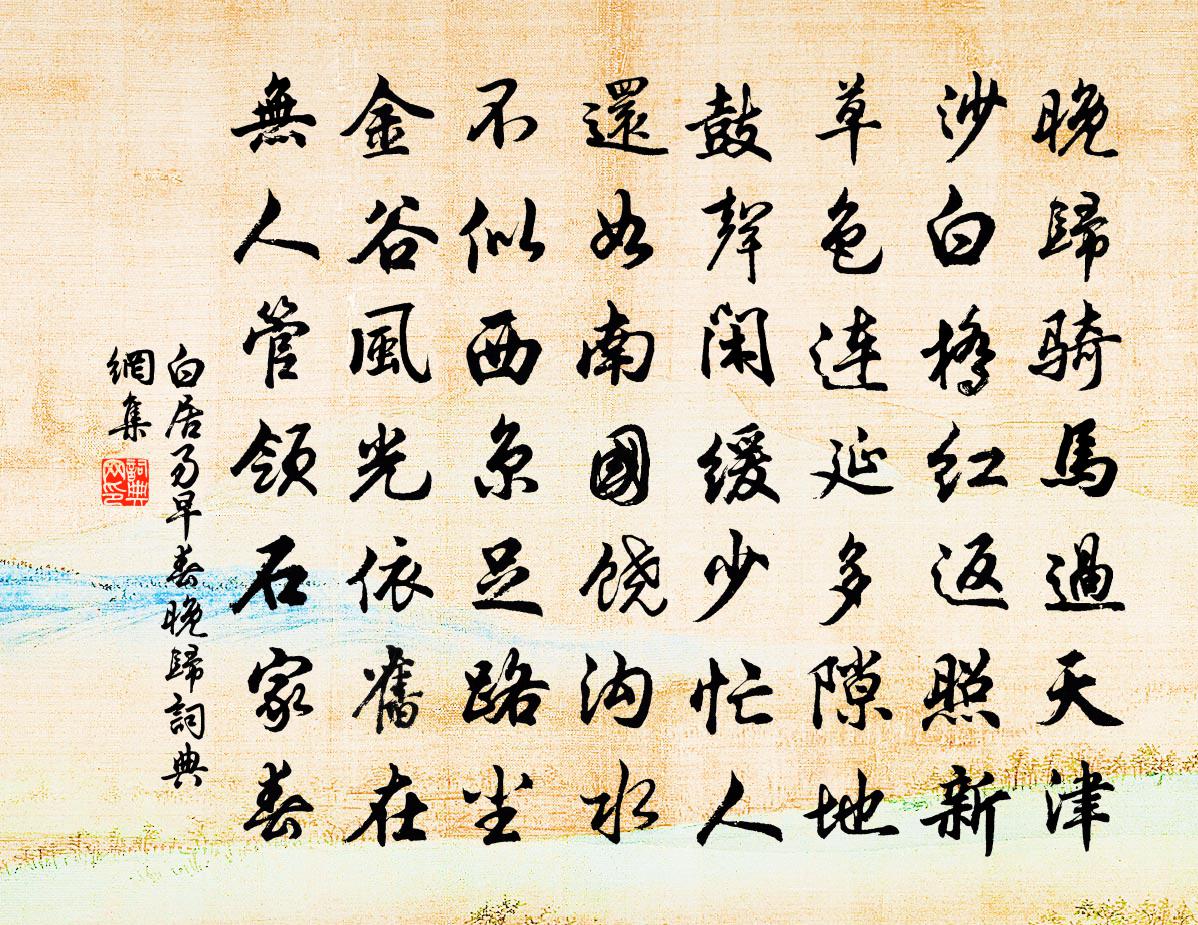 晚歸騎馬過天津
沙白橋紅返照新
草色連延多隙地
鼓聲閑緩少忙人
還如南國饒沟水
不似西京足路尘
金谷風光依舊在
無人管領石家春
白居易早春晚歸詞典
網集
詞典
网印